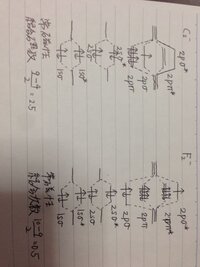 C₂⁻
2pσ*
2pπ*
2pσ
2pπ
2sσ*
2sσ
1sσ*
1sσ
常磁性
結合次数 9-4/2 = 2.5
F₂⁻
2pσ*
2pπ*
2pπ
2pσ
2sσ*
2sσ
1sσ*
1sσ
常磁性
結合次数 10-9/2 = 0.5